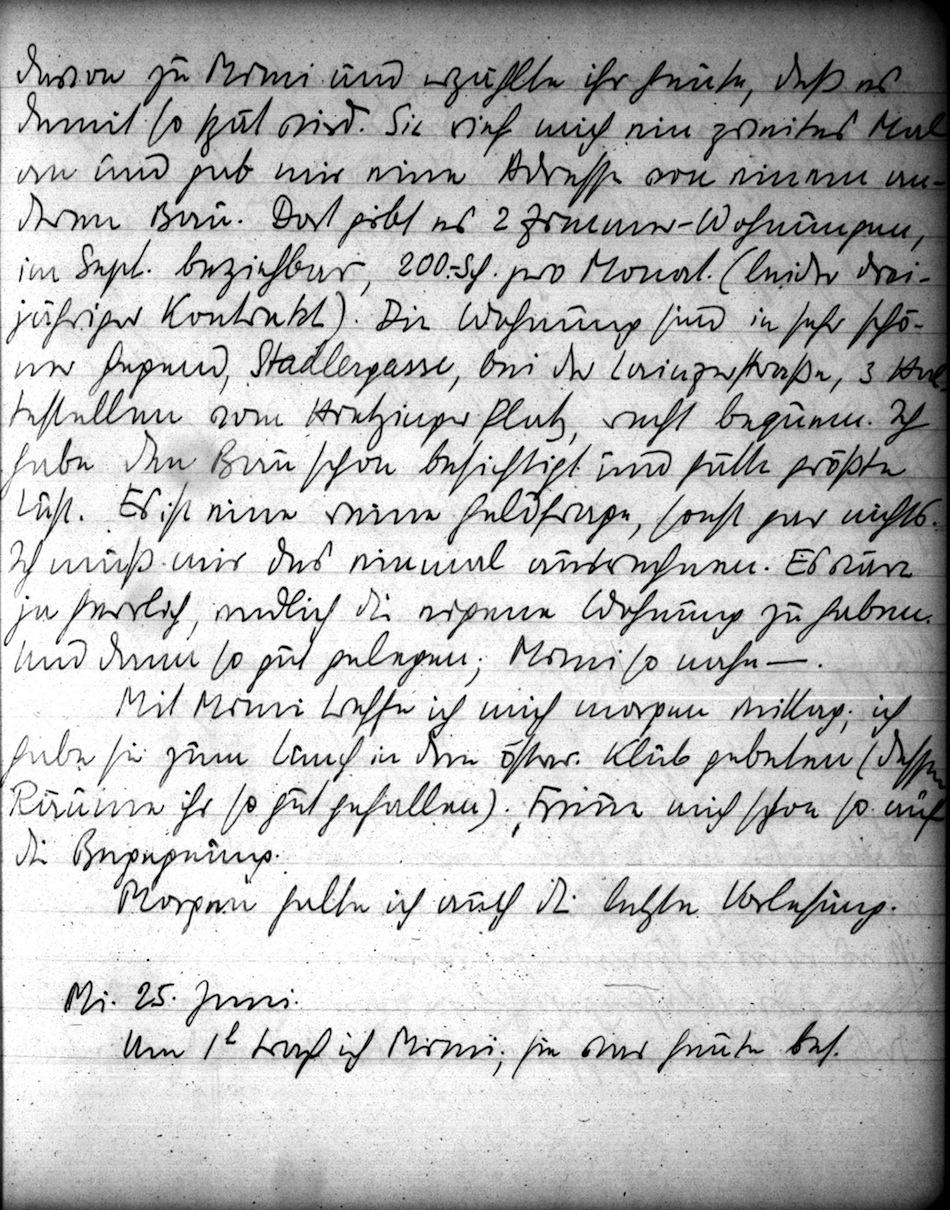 davon zu Mimi und erzählte ihr heute, daß es
damit so spät wird. Sie rief mich ein zweites Mal
an und gab mir eine Adresse von einem an-
deren Bau. Dort gibt es 2 Zimmer-Wohnungen,
im Sept. beziehbar, 200.-Sch. pro Monat. (leider drei-
jähriger Kontrakt). Die Wohnung sind in sehr schö-
ner Gegend, Stadlergasse, bei der Lainzerstraße, 3 Hal-
testellen vom Hietzinger Platz, recht bequem. Ich
habe den Bau schon besichtigt und hätte größte
Lust. Es ist eine reine Geldfrage, sonst gar nichts.
Ich muß mir das einmal ausrechnen. Es wäre
ja herrlich, endlich die eigene Wohnung zu haben.
Und dann so gut gelegen; Mimi so nahe—.
Mit Mimi treffe ich mich morgen Mittag; ich
habe sie zum Lunch in den österr. Klub gebeten (dessen
Räume ihr so gut gefallen). Freue mich schon so auf
die Begegnung.
Morgen halte ich auch die letzte Vorlesung.
Mi. 25. Juni.
Um 1h traf ich Mimi; sie war heute bes.